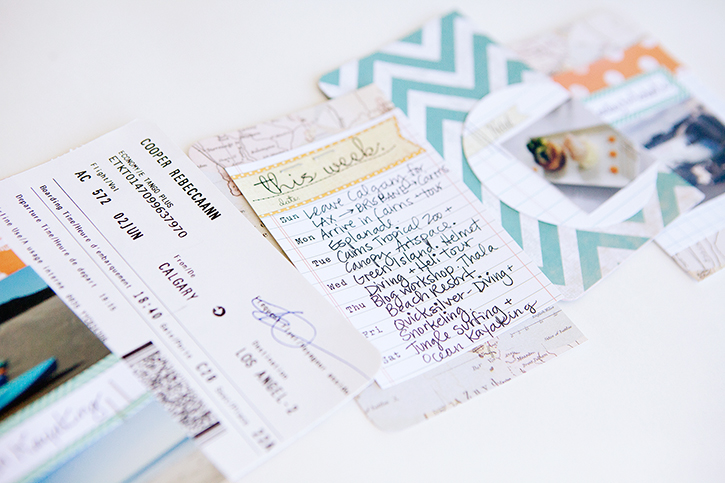 COOPER REBECCAANN
ECONOMY/E TANGO PLUS
ETKT0147099637970
Flight/Vol
From/De
AC 572 02JUN CALGARY
Destination
LOS ANGEL-0
Boarding Time/Heure d'embarquement
18:40
Gate/Porte
C20
22A
Departure Time/Heure de départ
19:15
this week.
date:
SUN Leave Calgary for
LAX → BRISBANE → Cairns
MON Arrive in Cairns + tour
Esplanade
TUE Cairns Tropical Zoo +
Canopy Artspace
WED Green Island: Helmet
Diving + Heli-Tour
THU Blog Workshop: Thala
Beach Resort
FRI Quicksilver - Diving +
Snorkeling
SAT Jungle Surfing +
Ocean Kayaking
Kayaking